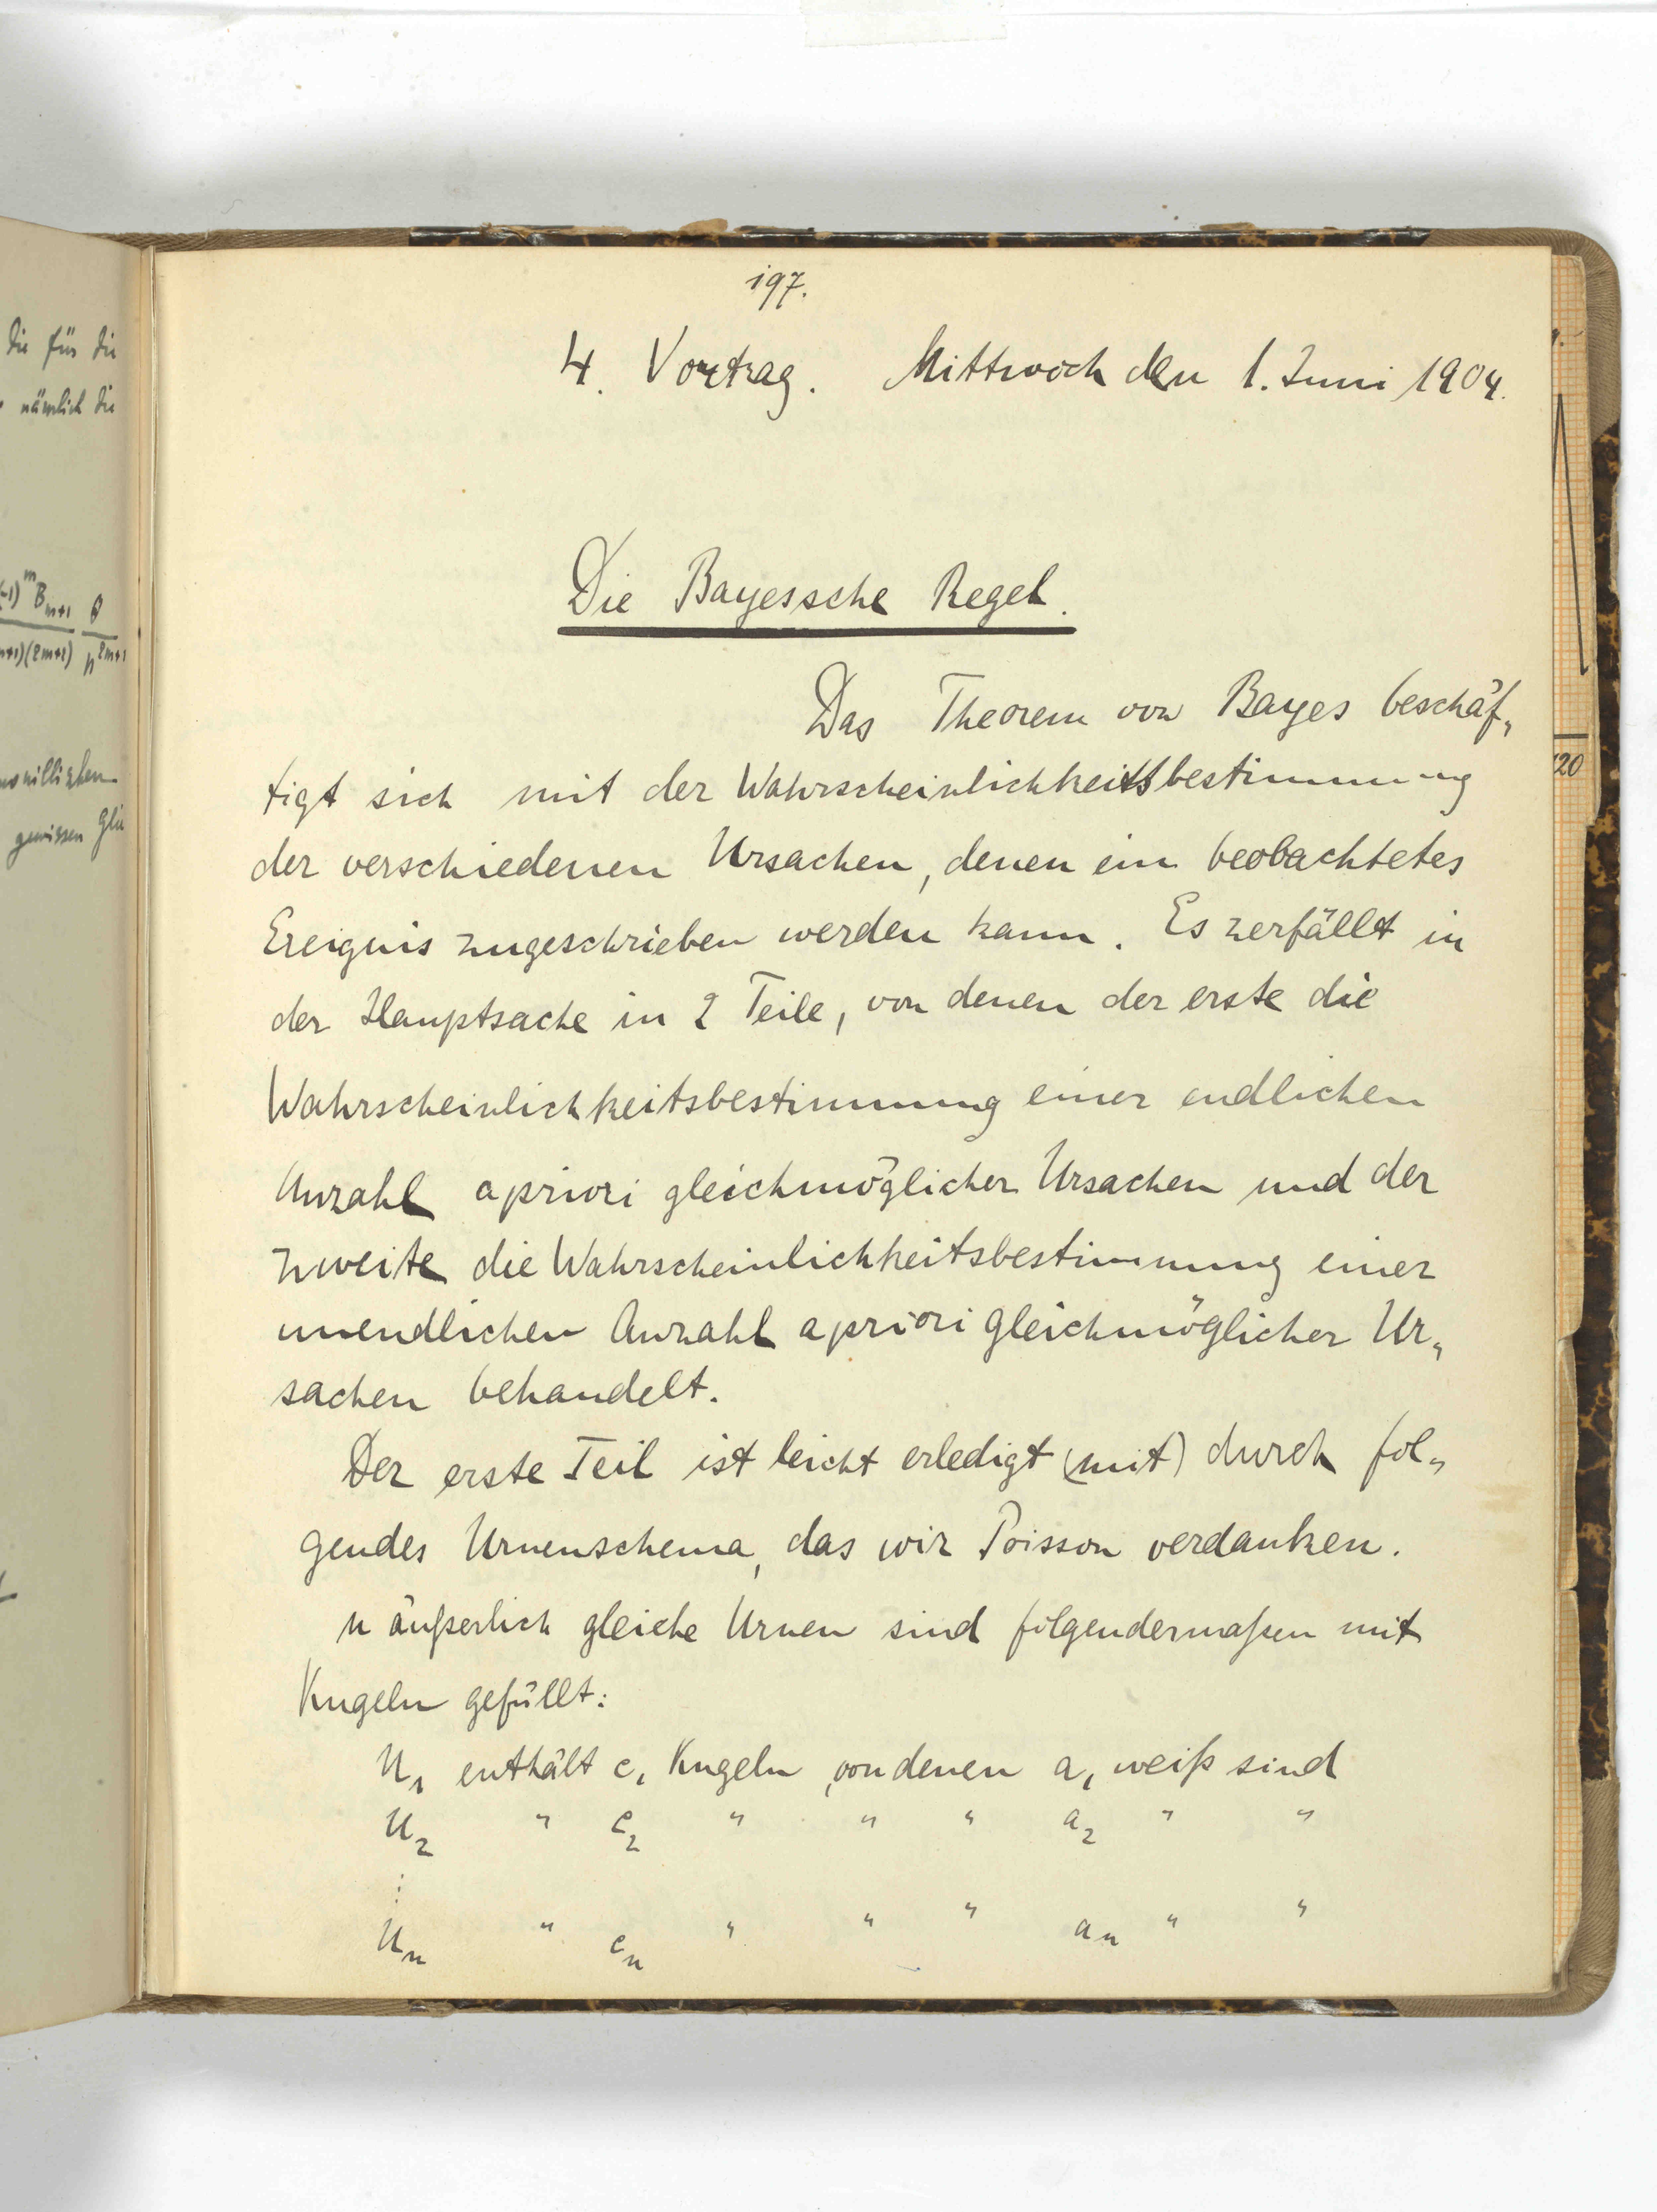 197.
4. Vortrag. Mittwoch den 1. Juni 1904.
Die Bayessche Regel.
Das Theorem von Bayes beschäf„
tigt sich mit der Wahrscheinlichkeitsbestimmung
der verschiedenen Ursachen, denen ein beobachtetes
Ereignis zugeschrieben werden kann. Es zerfällt in
der Hauptsache in 2 Teile, von denen der erste die
Wahrscheinlichkeitsbestimmung einer endlichen
Anzahl apriori gleichmöglicher Ursachen und der
zweite die Wahrscheinlichkeitsbestimmung einer
unendlichen Anzahl apriori gleichmöglicher Ur„
sachen behandelt.
Der erste Teil ist leicht erledigt (mit) durch fol„
gendes Urnenschema, das wir Poisson verdanken.
n äußerlich gleiche Urnen sind folgendermaßen mit
Kugeln gefüllt:
U₁ enthält c₁ Kugeln, von denen a₁ weiß sind
U₂ " c₂ " " " a₂ " "
⋮
Uₙ " cₙ " " " aₙ " "
die für die
nämlich die
(-1)ᵐ Bₘ₊₁ θ
(2m+2) n²ᵐ⁺¹
gewissen
120